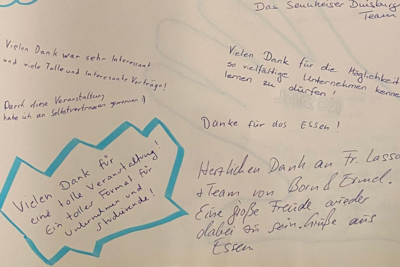 Das Sennheiser Duisburg
Team
Vielen Dank war sehr Interessant
und viele Tolle und Interessante Vorträge!
Durch diese Veranstaltung
habe ich an Selbstvertrauen gewonnen :)
Vielen Dank für die Möglichkeit
so vielfältige Unternehmen kennen
lernen zu dürfen!
Danke für das Essen!
Vielen Dank für
eine tolle Veranstaltung!
Ein toller Format für
Unternehmen und
Studierende!
Herzlichen Dank an Fr. Lassa
+Team von Born & Ermel.
Eine große Freude wieder
dabei zu sein. Grüße aus
Essen